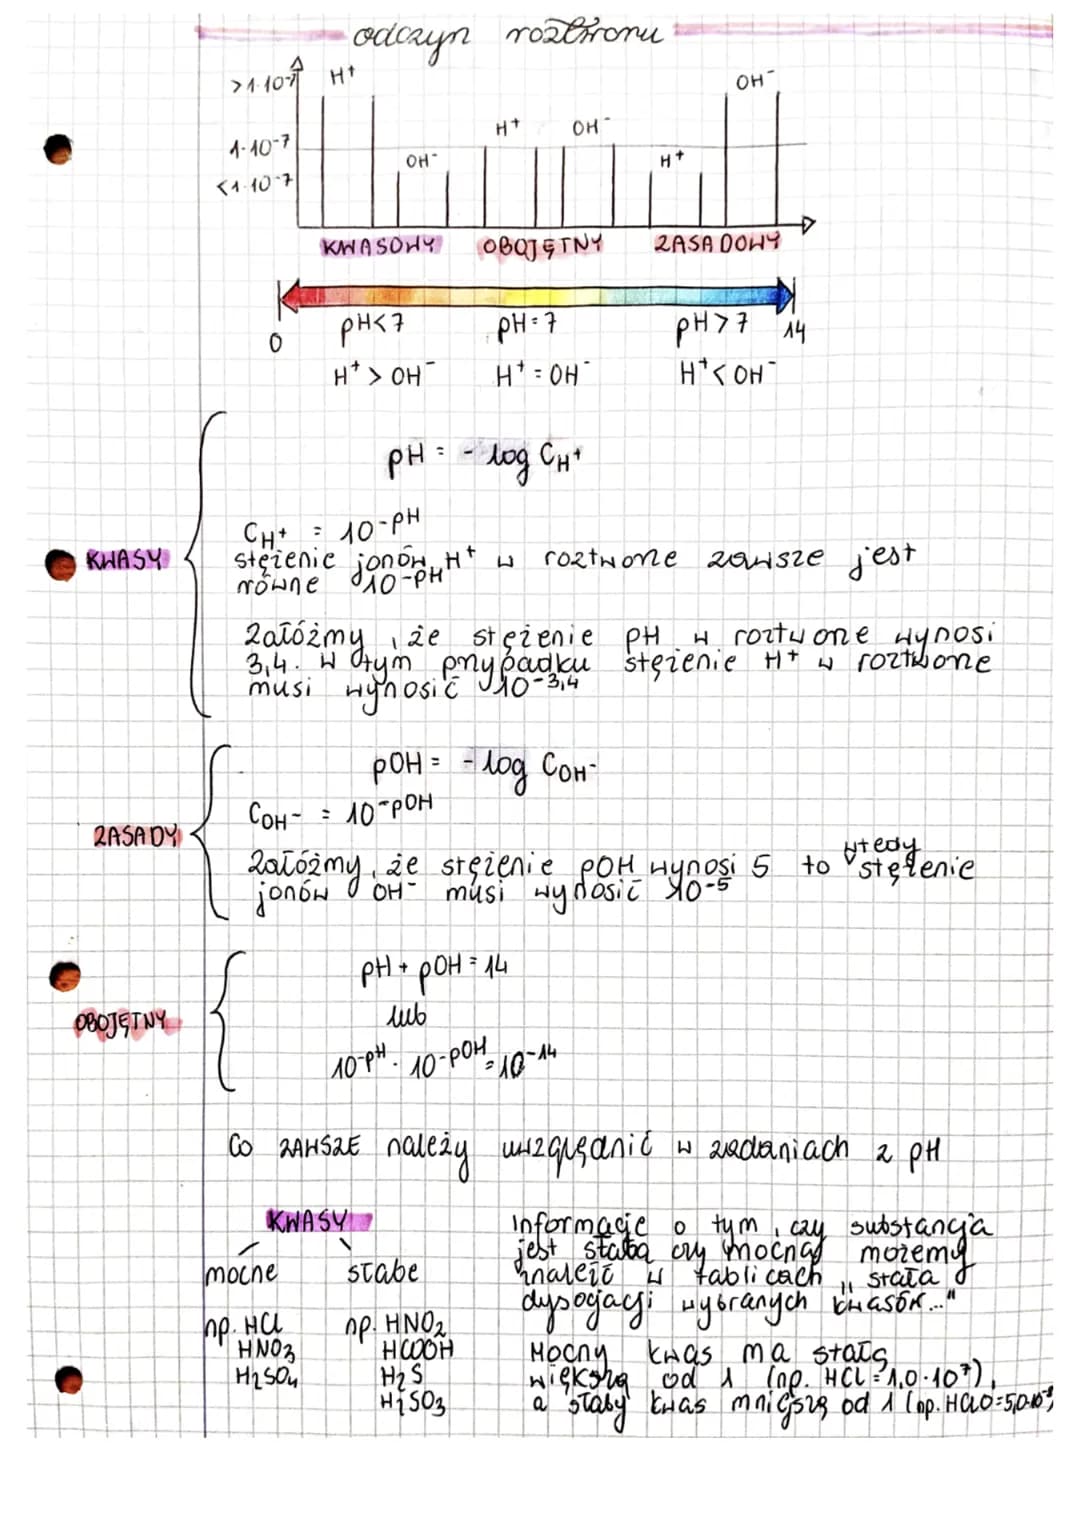 odczyn roztworu
>1·10⁻⁷
H⁺
OH⁻
1·10⁻⁷
H⁺
OH⁻
<1·10⁻⁷
OH⁻
H⁺
KWASOWY OBOJĘTNY ZASADOWY
0 pH<7 pH=7 pH>7 14
H⁺ > OH⁻ H⁺ = OH⁻ H⁺ < OH⁻
pH = - log C_H⁺
KWASY
C_H⁺ = 10⁻ᵖᴴ
stężenie jonów H⁺ w roztworze zawsze jest
równe 10⁻ᵖᴴ
Załóżmy, że stężenie pH w roztworze wynosi
3,4. W tym przypadku stężenie H⁺ w roztworze
musi wynosić 10⁻³,⁴
ZASADY
pOH = - log C_OH⁻
C_OH⁻ = 10⁻ᵖᴼᴴ
Załóżmy, że stężenie pOH wynosi 5 to wtedy stężenie
jonów OH⁻ musi wynosić 10⁻⁵
OBOJĘTNY
pH + pOH = 14
lub
10⁻ᵖᴴ · 10⁻ᵖᴼᴴ = 10⁻¹⁴
Co ZAWSZE należy uwzględnić w zadaniach z pH
KWASY
mocne słabe
np. HCl np. HNO₂
HNO₃ HCOOH
H₂SO₄ H₂S
H₂SO₃
Informacje o tym, czy substancja
jest słabą czy mocną możemy
znaleźć w tablicach "stała
dysocjacji wybranych kwasów..."
Mocny kwas ma stałą
większą od 1 (np. HCl = 1,0·10⁷),
a słaby kwas mniejszą od 1 (np. HClO = 5,0·10⁻⁸)